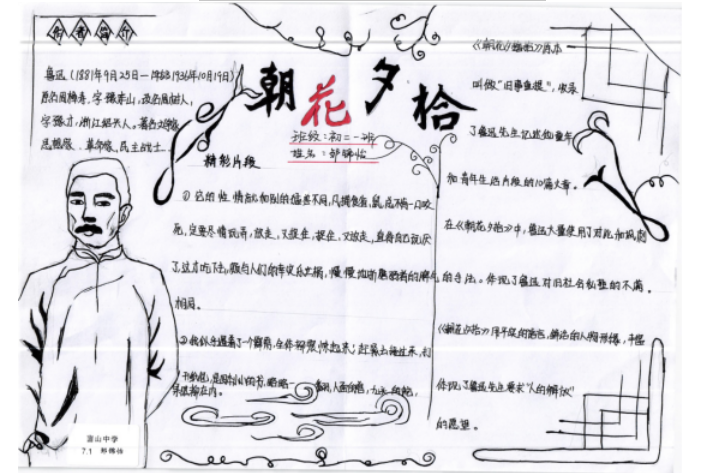 作者简介
鲁迅(1881年9月25日—1936年10月19日)
原名周樟寿,字豫山,改名周树人,
字豫才,浙江绍兴人。著名文学家
思想家、革命家、民主战士
朝花夕拾
班级:初二一班
姓名:
精彩片段
① 它的性情就和别的猛兽不同,凡捕食雀、鼠,总不肯一口咬
死,定要尽情玩弄,放走,又捉住,捉住,又放走,直待自己玩厌
了,这才吃下去,颇与人们的幸灾乐祸,慢慢地折磨弱者的坏脾气
相同。
② 我似乎遇着了一个霹雳,全体都震悚起来;赶紧去接过来,打
开纸包,是四本小小的书,略略一翻,人面的兽,九头的蛇,
果然都在内。
《朝花夕拾》原本
叫做“旧事重提”,收录
了鲁迅先生记述他童年
和青年生活片段的10篇文章。
在《朝花夕拾》中,鲁迅大量使用了对比和讽刺
的手法。体现了鲁迅对旧社会私塾的不满。
《朝花夕拾》用平实的语言,鲜活的人物形象,
体现了鲁迅先生要求“人的解放”
的愿望。
中学
7.1